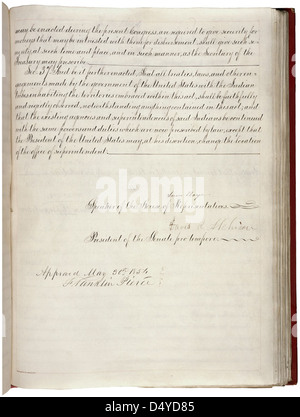 may be enacted during the present Congress, are required to give security for
moneys that may be intrusted to them for disbursement, shall give such se-
curity, at such time and place, and in such manner, as the Secretary of the
Treasury may prescribe.
Sec. 37. And be it further enacted, That all treaties, laws, and other en-
gagements made by the government of the United States with the Indian
tribes inhabiting the territories embraced within this act, shall be faithfully
and rigidly observed, notwithstanding anything contained in this act; and
that the existing agencies and superintendencies of said Indians be continued
with the same powers and duties which are now prescribed by law, except that
the President of the United States may, at his discretion, change the location
of the office of superintendent.
Speaker of the House of Representatives
President of the Senate pro tempore
Approved May 30th 1854
Franklin Pierce
alamy
Image ID: D4YD85
www.alamy.com